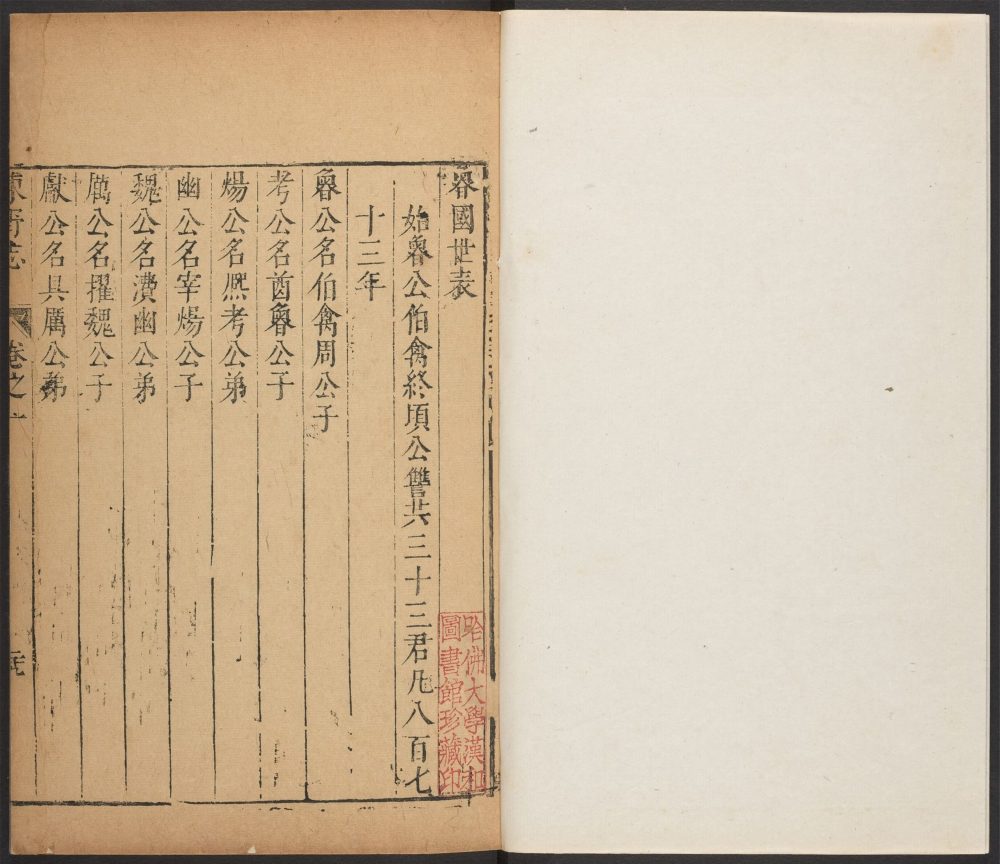 魯國世表
始魯公伯禽終頃公讐共三十三君凡八百七
十三年
魯公名伯禽周公子
考公名酋魯公子
煬公名熈考公弟
幽公名宰煬公子
魏公名㵒幽公弟
厲公名擢魏公子
獻公名具厲公弟
卷之一
哈佛大學漢和
圖書館珍藏印